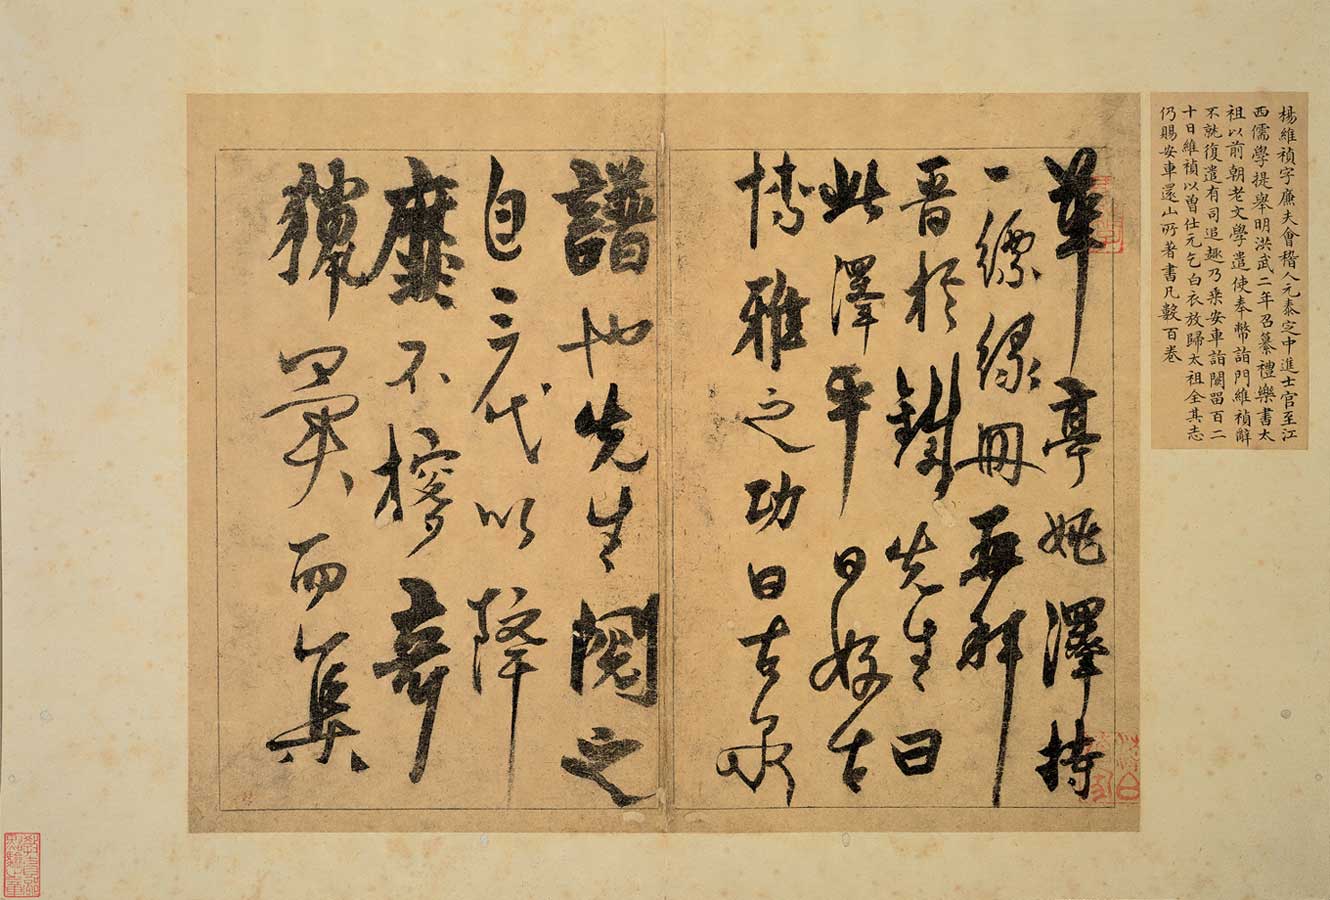 楊維禎字廉夫會稽人元泰定中進士官至江
西儒學提舉明洪武二年召纂禮樂書太
祖以前朝老文學遣使奉幣詣門維禎辭
不就復遣有司追趣乃乘安車詣闕留百二
十日維禎以曽仕元乞白衣放歸太祖全其志
仍賜安車還山所著書凡數百卷
華亭姚澤持
一縹緑冊再拜
晋於鐵先生曰
此澤平日好古
博雅之功曰古泉
譜也先生閱之
自三代以降
靡不
獵彙而集